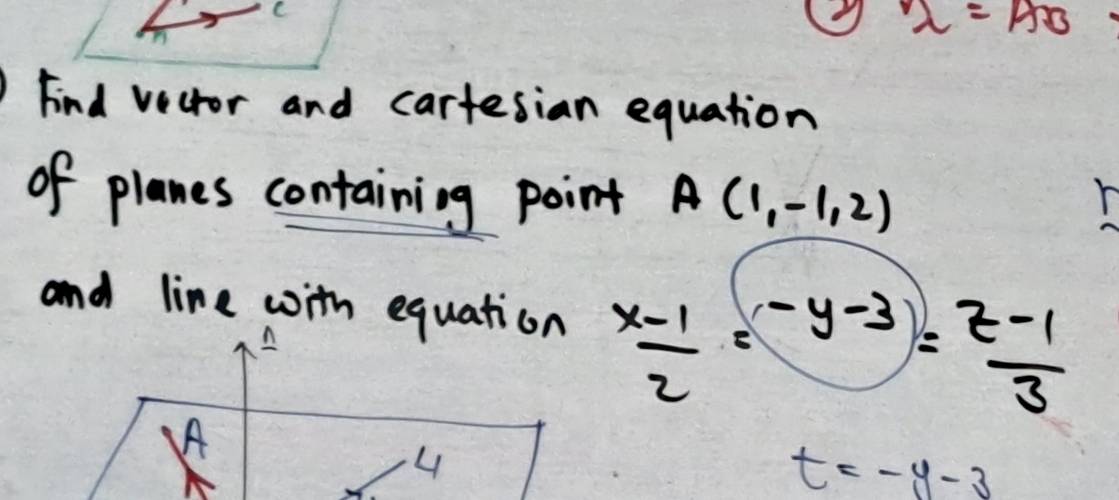 c
② ñ = AB
) Find vector and cartesian equation
of planes containing point A (1,-1,2)
and line with equation x-1/2 = -y-3 = z-1/3
n
A
4
t = -y-3